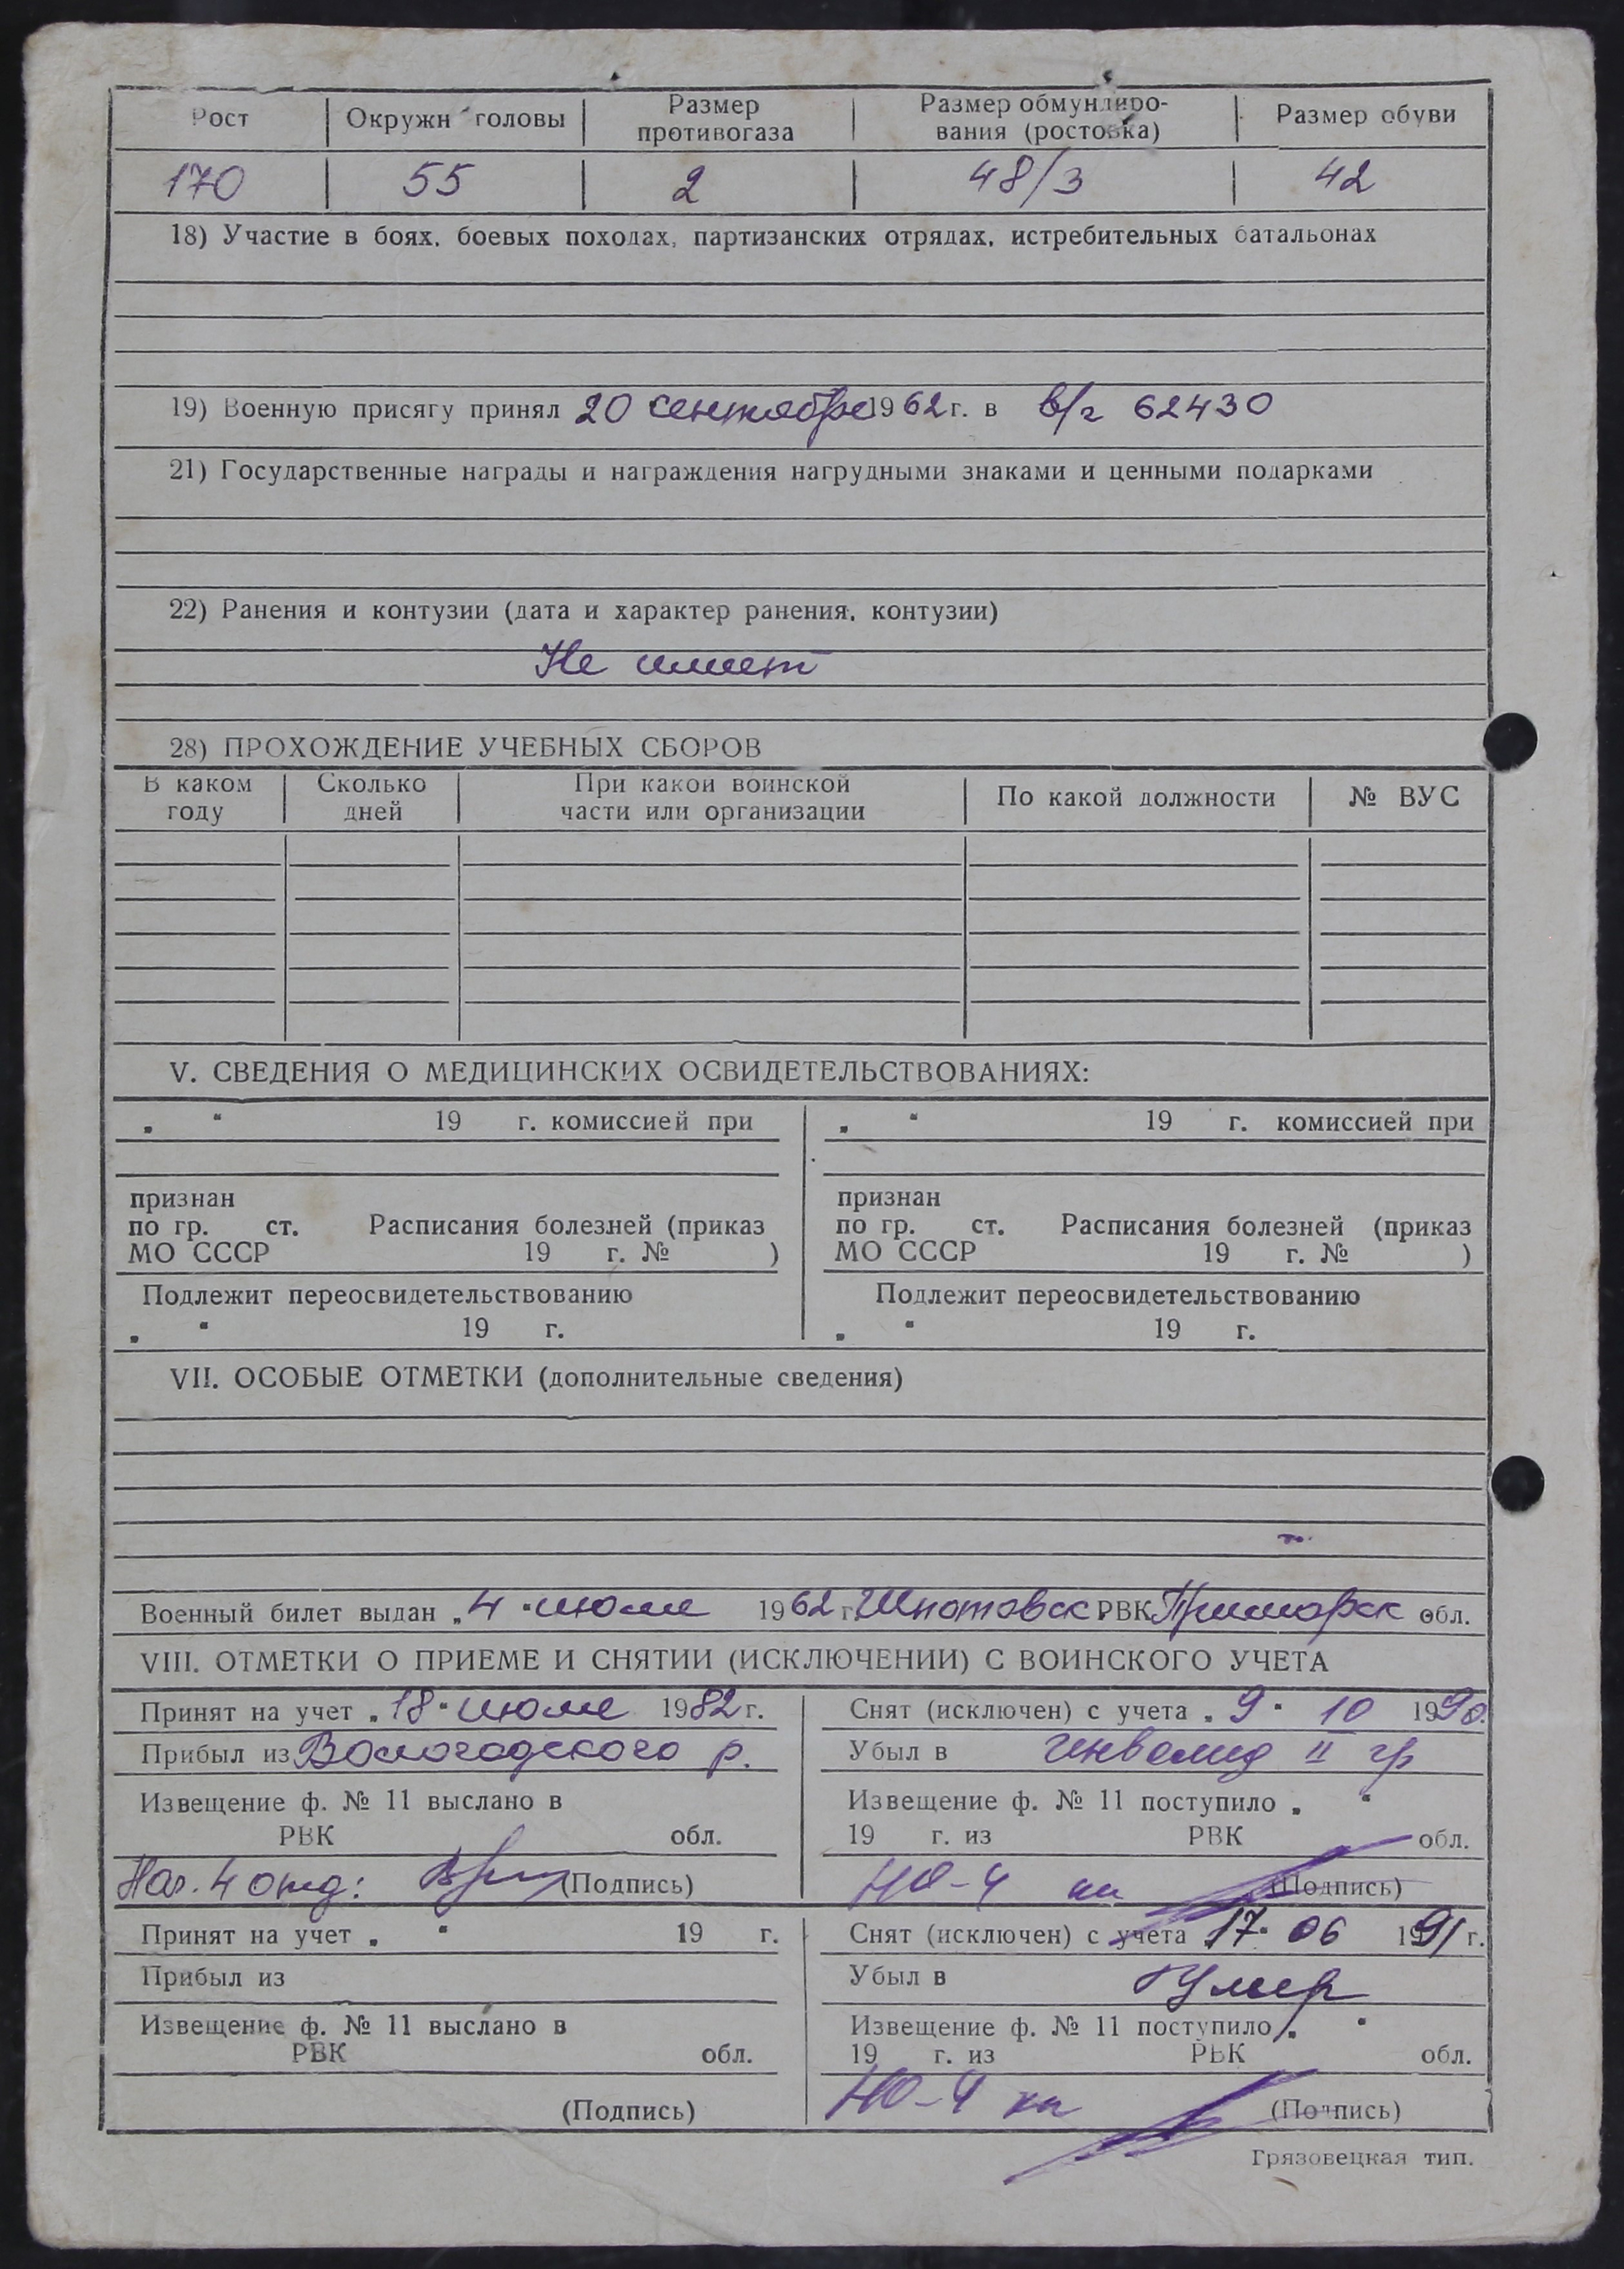 Рост Окружн головы Размер противогаза Размер обмундиро-вания (ростовка) Размер обуви
170 55 2 48/3 42
18) Участие в боях, боевых походах, партизанских отрядах, истребительных батальонах
19) Военную присягу принял 20 сентября 1962 г. в в/ч 62430
21) Государственные награды и награждения нагрудными знаками и ценными подарками
22) Ранения и контузии (дата и характер ранения, контузии)
Не имеет
28) ПРОХОЖДЕНИЕ УЧЕБНЫХ СБОРОВ
В каком году Сколько дней При какой воинской части или организации По какой должности № ВУС
V. СВЕДЕНИЯ О МЕДИЦИНСКИХ ОСВИДЕТЕЛЬСТВОВАНИЯХ:
„ “ 19 г. комиссией при
признан
по гр. ст. Расписания болезней (приказ
МО СССР 19 г. № )
Подлежит переосвидетельствованию
„ “ 19 г.
„ “ 19 г. комиссией при
признан
по гр. ст. Расписания болезней (приказ
МО СССР 19 г. № )
Подлежит переосвидетельствованию
„ “ 19 г.
VII. ОСОБЫЕ ОТМЕТКИ (дополнительные сведения)
Военный билет выдан „4“ июля 1962 г. Шкотовск РВК Приморск обл.
VIII. ОТМЕТКИ О ПРИЕМЕ И СНЯТИИ (ИСКЛЮЧЕНИИ) С ВОИНСКОГО УЧЕТА
Принят на учет „18“ июля 1982 г.
Прибыл из Вологодского р.
Извещение ф. № 11 выслано в
РВК обл.
Нач. 4 отд: (Подпись)
Снят (исключен) с учета „9“ 10 1990.
Убыл в инвалид II гр
Извещение ф. № 11 поступило „ “
19 г. из РВК обл.
НО-4 (Подпись)
Принят на учет „ “ 19 г.
Прибыл из
Извещение ф. № 11 выслано в
РВК обл.
(Подпись)
Снят (исключен) с учета 17“ 06 1991 г.
Убыл в Умер
Извещение ф. № 11 поступило „ “
19 г. из РВК обл.
НО-4 (Подпись)
Грязовецкая тип.